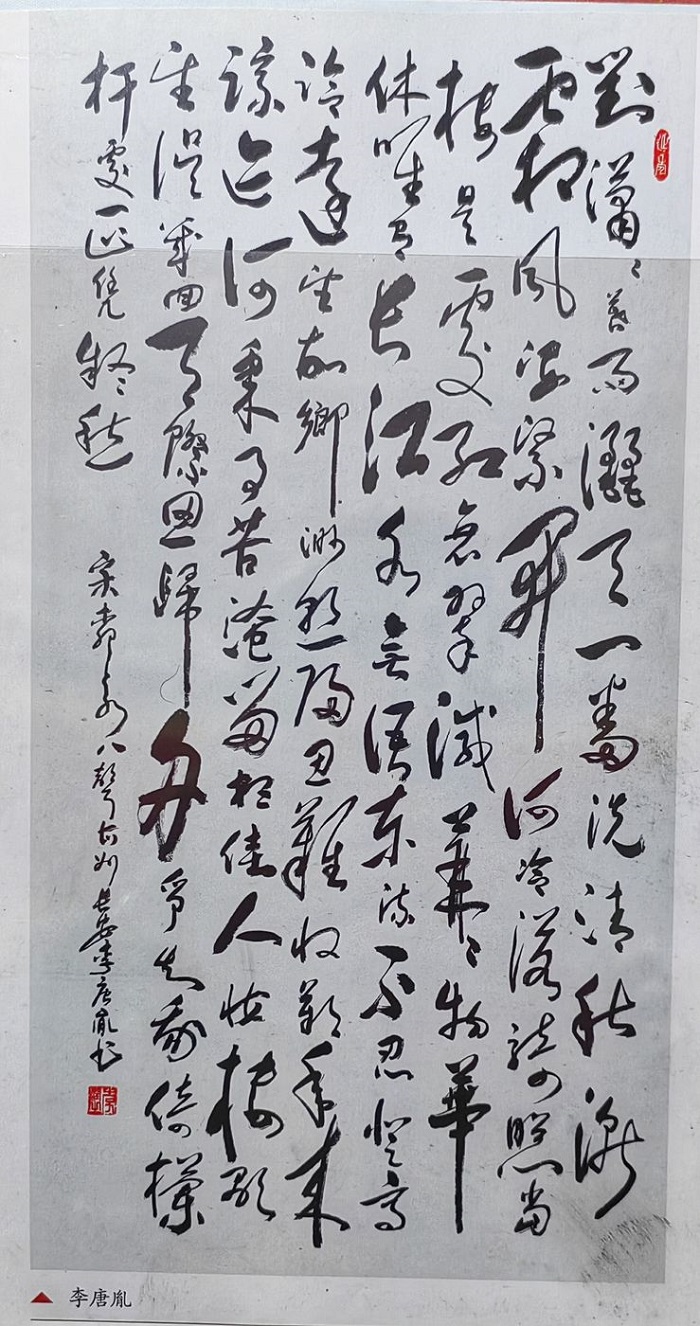 對瀟〻暮雨灑天一番洗清秋漸
霜風淒緊關河冷落殘照當
樓是處紅衰翠減苒〻物華
休唯有長江水無語東流不忍登高
臨遠望故鄉渺邈歸思難收歎年來
蹤迹何事苦淹留想佳人妝樓顒
望誤幾回天際思歸舟爭知我倚欄
杆處正恁凝愁
宋柳永八聲甘州長安李唐胤書
李唐胤